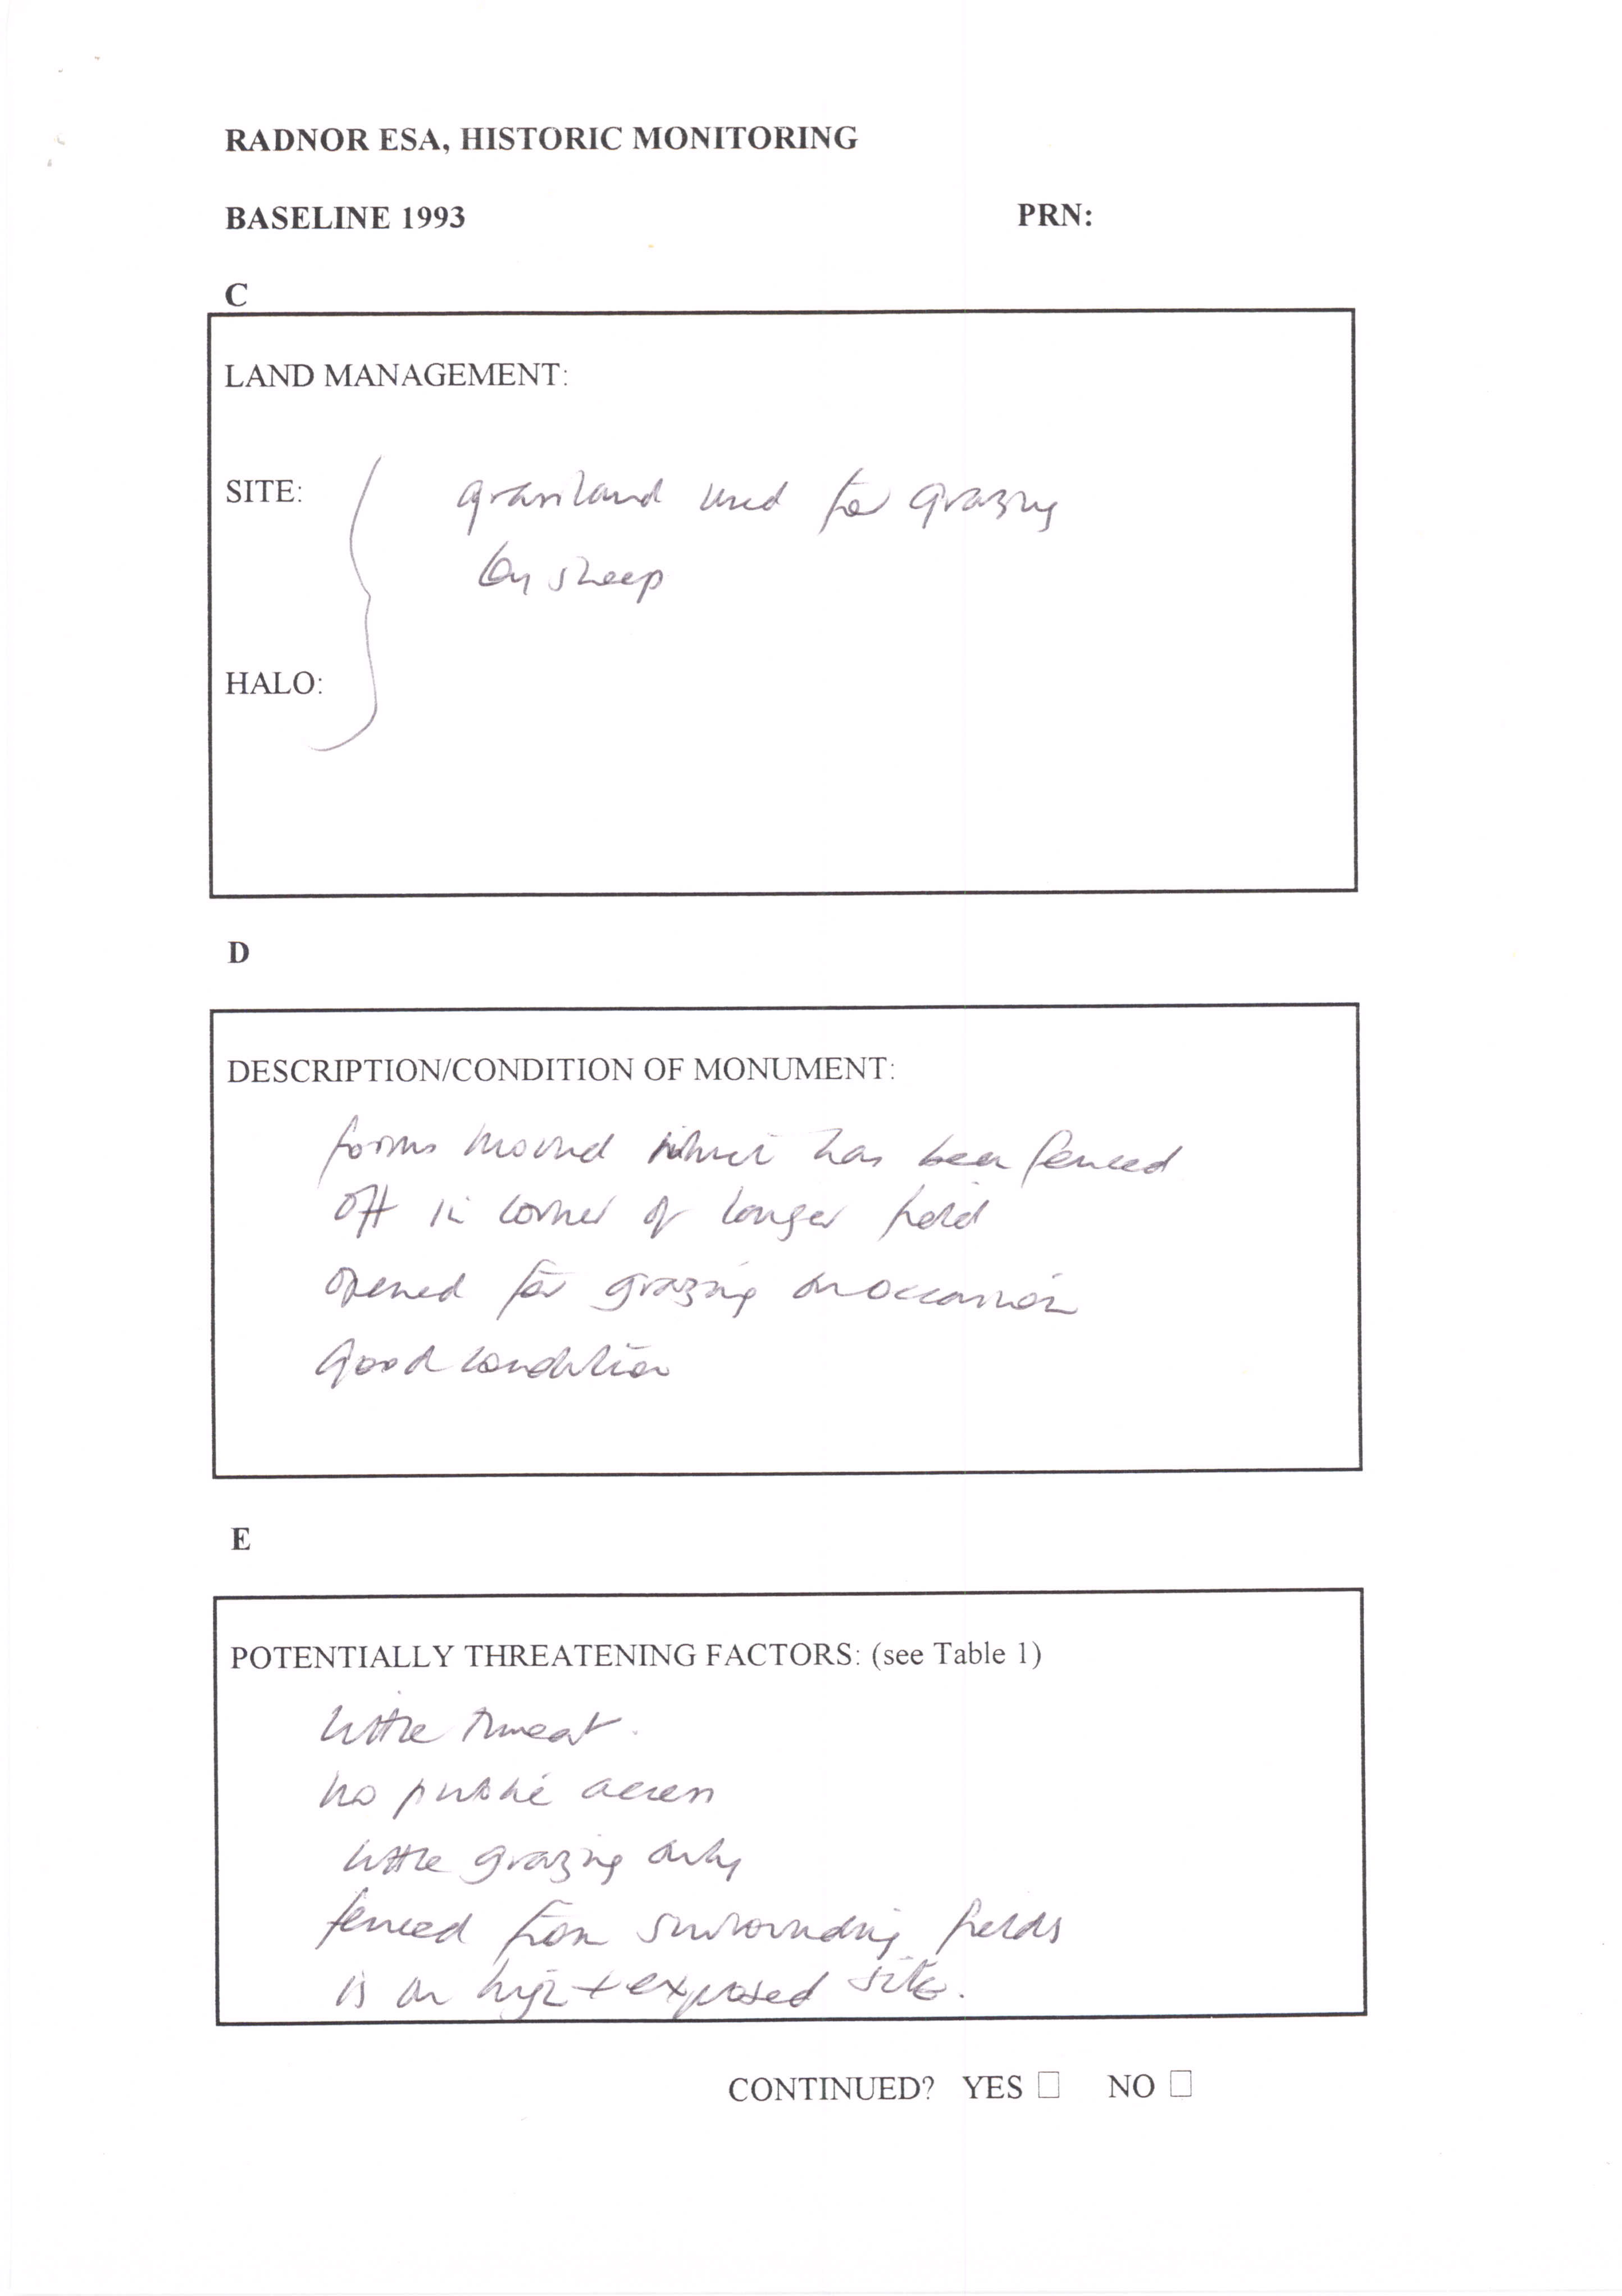 RADNOR ESA, HISTORIC MONITORING
BASELINE 1993 PRN:
C
LAND MANAGEMENT:
SITE:
grassland used for grazing
by sheep
HALO:
D
DESCRIPTION/CONDITION OF MONUMENT:
forms mound which has been fenced
off in corner of longer field
opened for grazing on occasion
Good condition
E
POTENTIALLY THREATENING FACTORS: (see Table 1)
little threat.
no public access
little grazing only
fenced from surrounding fields
is on high + exposed site.
CONTINUED? YES ☐ NO ☐